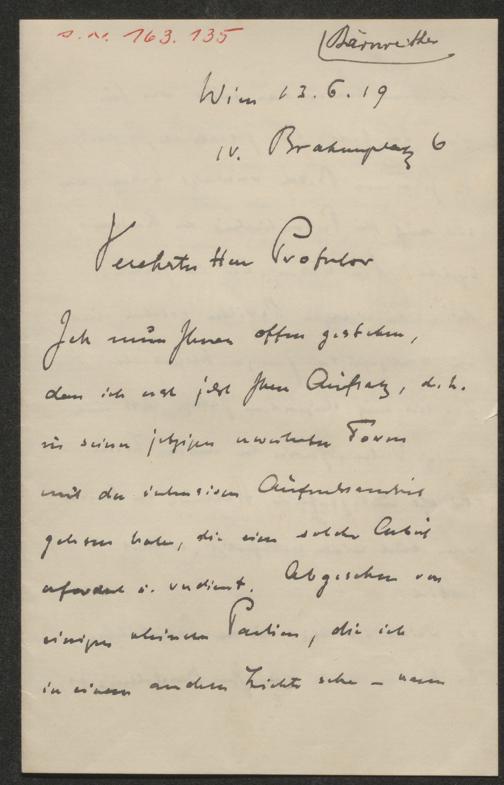 s. n. 163.135
Bärnreither
Wien 13.6.19
IV. Brahmsplatz 6
Verehrter Herr Professor
Ich muss Ihnen offen gestehen,
dass ich erst jetzt Ihren Aufsatz, d. h.
in seiner jetzigen erweiterten Form
mit der intensiven Aufmerksamkeit
gelesen habe, die eine solche Arbeit
erfordert u. verdient. Abgesehen von
einigen kleinen Partien, die ich
in einem andern Lichte sehe –